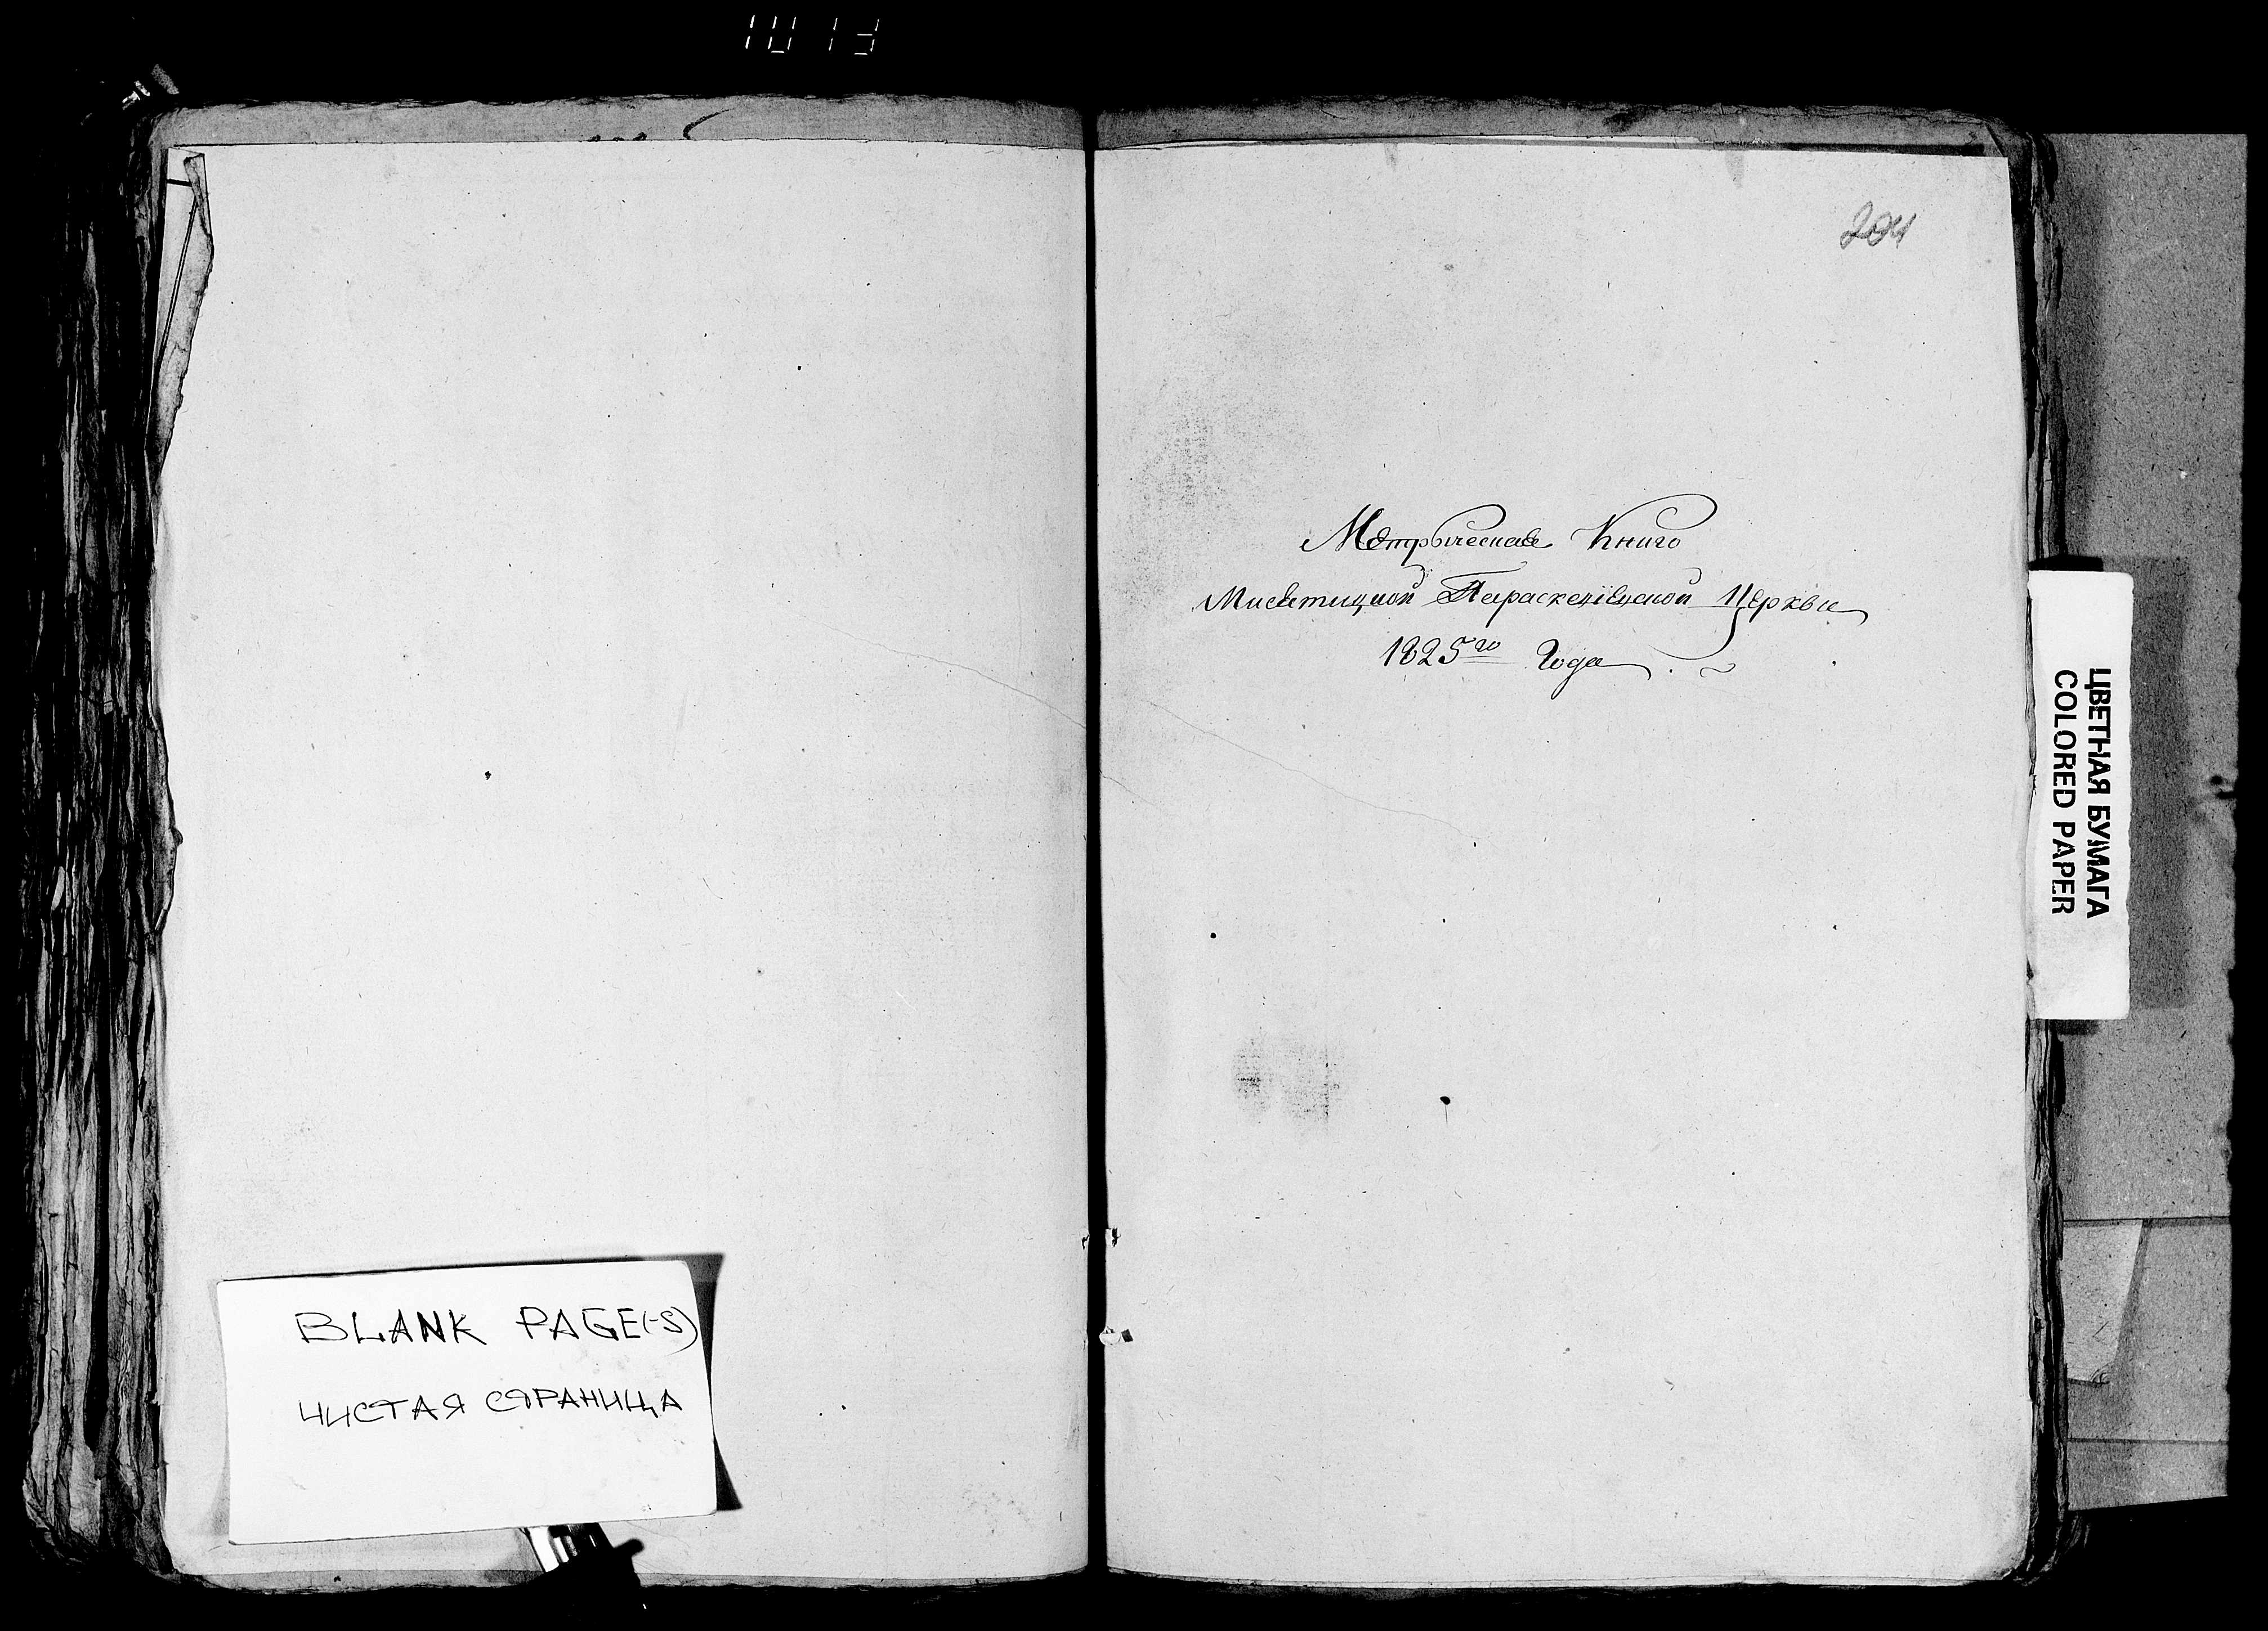 1013
204
Метрическая Книга
Параскевiевской Церкви
1825го Года
ЦВЕТНАЯ БУМАГА
COLORED PAPER
BLANK PAGE(-S)
ЧИСТАЯ СТРАНИЦА